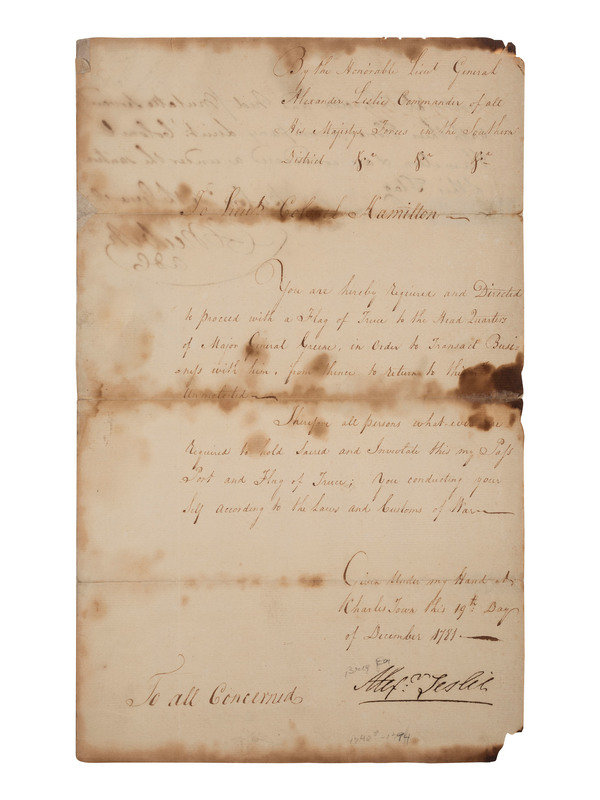 By the Honorable Lieut General
Alexander Leslie Commander of all
His Majestys Forces in the Southern
District &ca &ca &ca
To Lieut Colonel Hamilton
You are hereby required and Directed
to proceed with a Flag of Truce to the Head Quarters
of Major General Greene, in Order to Transact Busi-
ness with him, from thence to return to this
Unmolested
Therefore all persons whatever are
Required to hold Sacred and Inviolate this my Pass
Port and Flag of Truce; You conducting your
Self according to the Laws and Customs of War
Given Under my Hand at
Charles Town this 19th Day
of December 1781
Alexr Leslie
To all Concerned
1740 - 1794